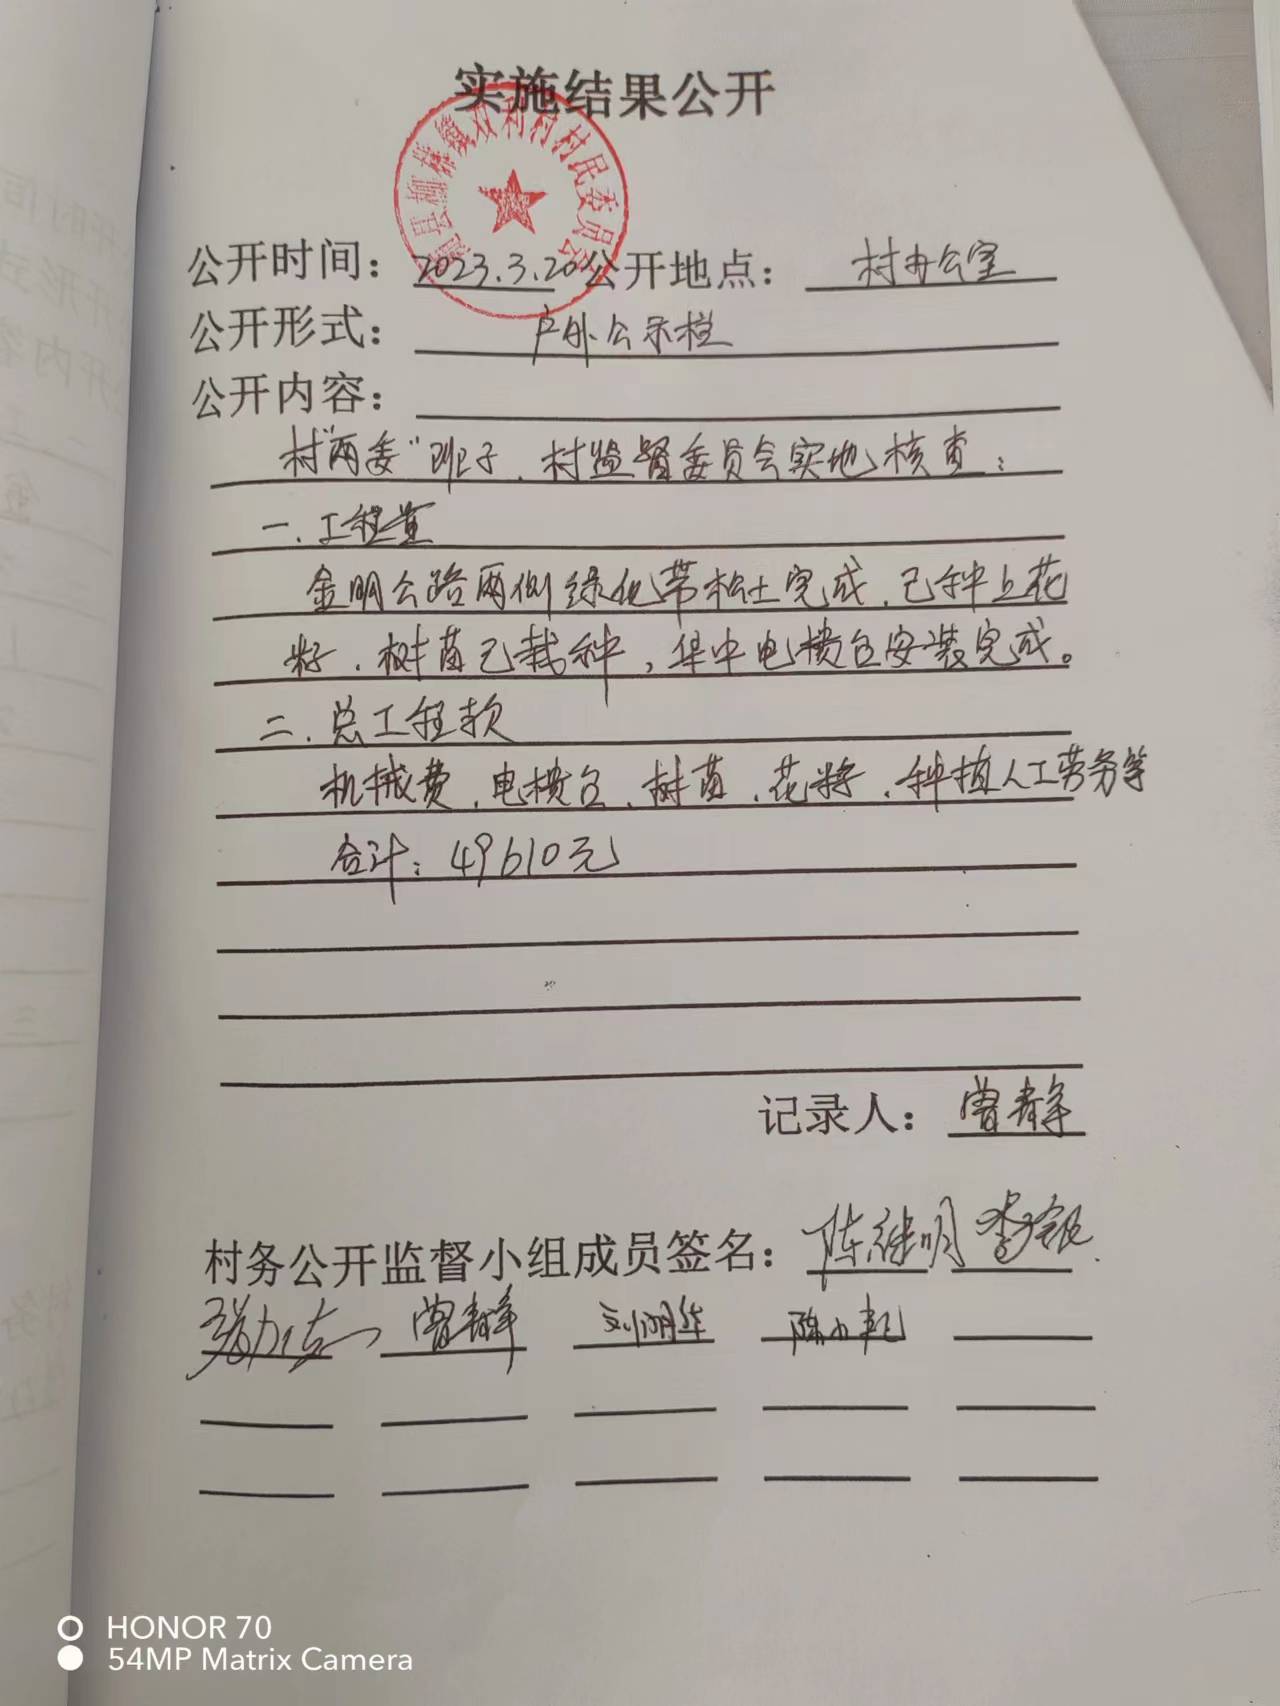 实施结果公开
县柳林镇双利村村民委员会
公开时间：2023.3.20 公开地点：村办公室
公开形式：户外公示栏
公开内容：
村"两委"班子、村监督委员会实地核查：
一、工程量
金明公路两侧绿化带松土完成、已种上花
籽、树苗已栽种，集中电横包安装完成。
二、总工程款
机械费、电横包、树苗、花籽、种植人工劳务等
合计：49610元
记录人：曾静
村务公开监督小组成员签名：陈继明
曾静 刘明华 陈小
HONOR 70
54MP Matrix Camera